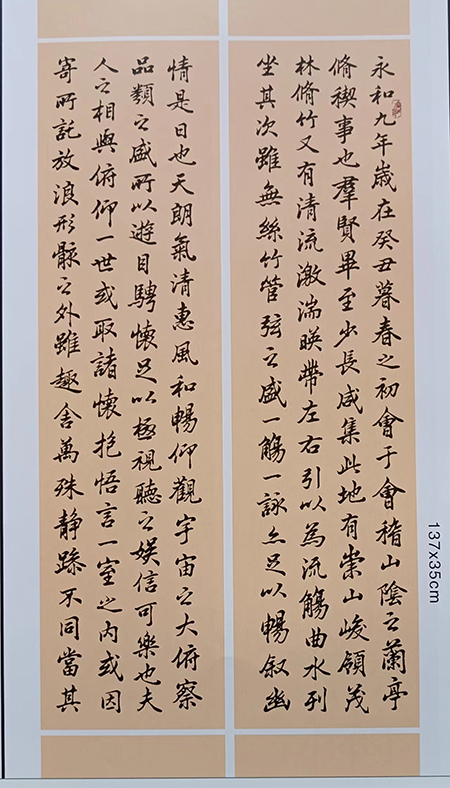 永和九年歲在癸丑暮春之初會于會稽山陰之蘭亭
脩稧事也羣賢畢至少長咸集此地有崇山峻領茂
林脩竹又有清流激湍暎帶左右引以為流觴曲水列
坐其次雖無絲竹管弦之盛一觴一詠亦足以暢敘幽
情是日也天朗氣清惠風和暢仰觀宇宙之大俯察
品類之盛所以遊目騁懷足以極視聽之娛信可樂也夫
人之相與俯仰一世或取諸懷抱悟言一室之內或因
寄所託放浪形骸之外雖趣舍萬殊静躁不同當其
137x35cm